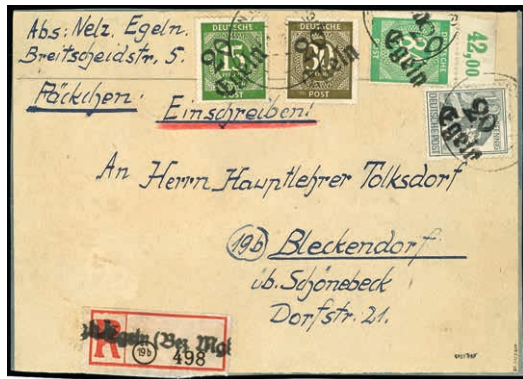 Abs: Nelz. Egeln.
Breitscheidstr. 5.
Päckchen.
Einschreiben!
DEUTSCHE
15
POST
20
Egeln
DEUTSCHE
30
POST
20
Egeln
DEUTSCHE
POST
20
Egeln
42.00
DEUTSCHE POST
PFENNIG
20
Egeln
An Herrn Hauptlehrer Tolksdorf
19b Bleckendorf.
üb. Schönebeck
Dorfstr. 21.
R
Egeln (Bez. Mgb
19b
498